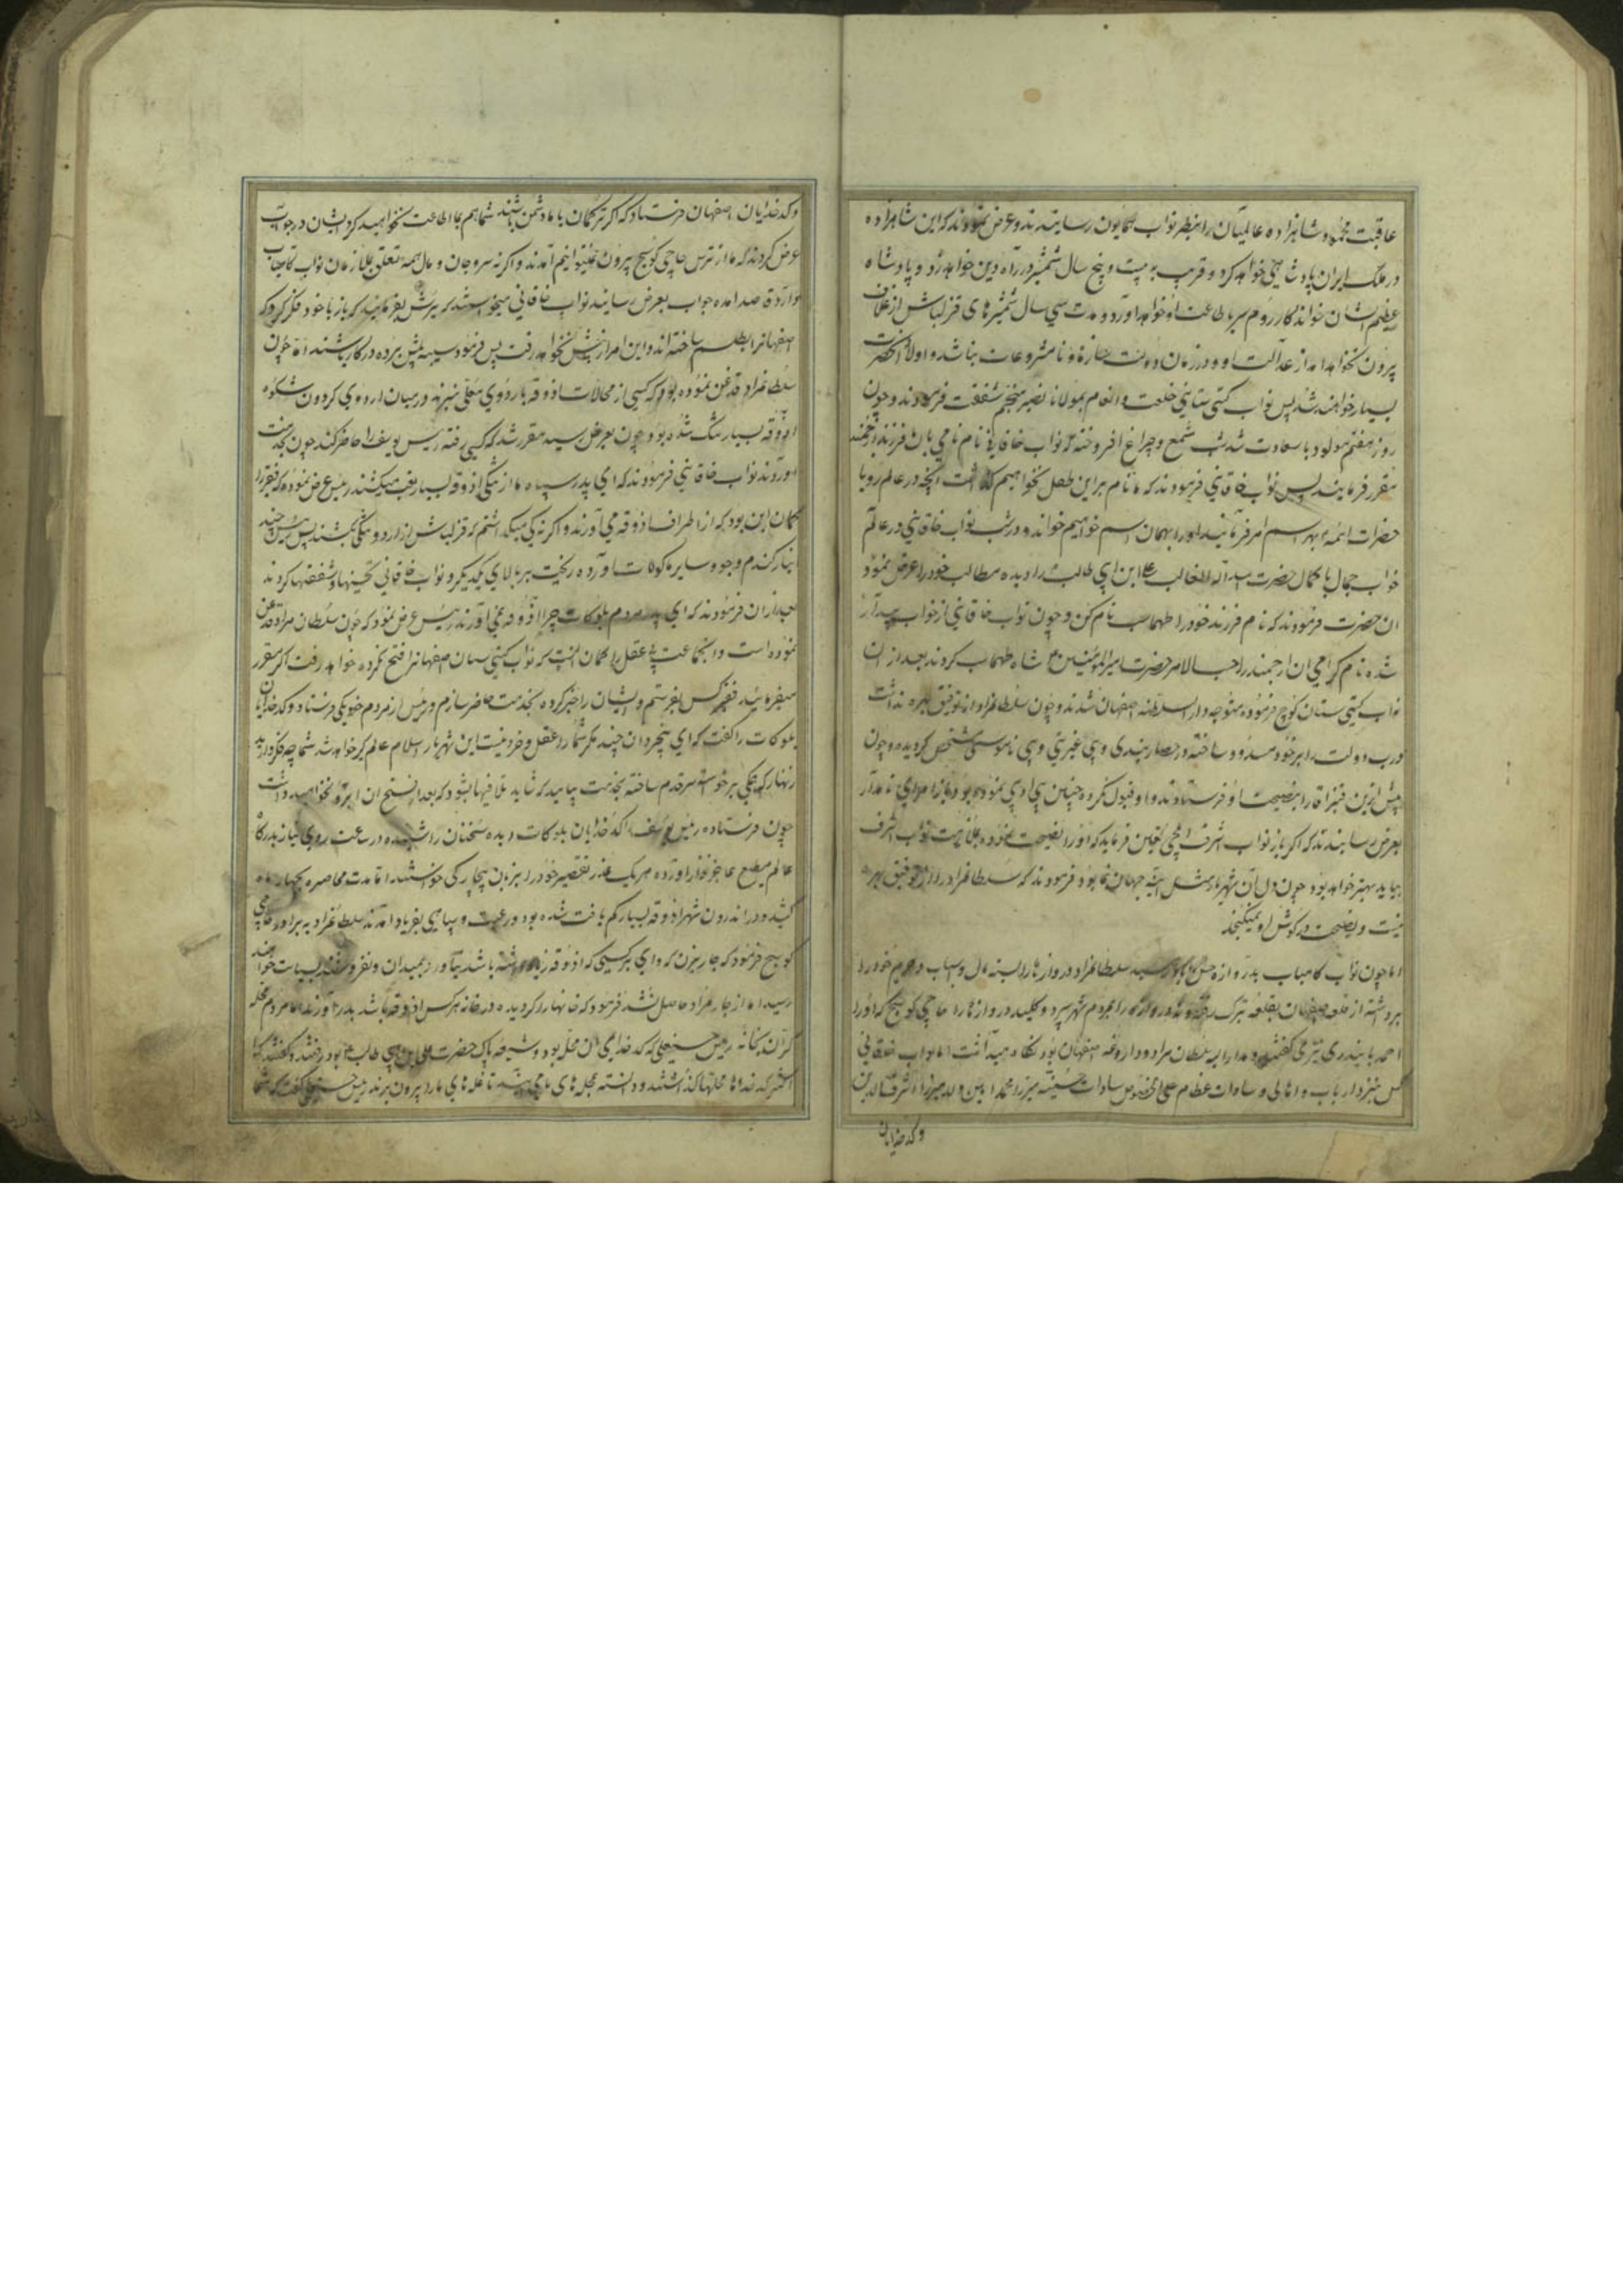 عاقبت محمود شاهزاده عالمیان را بنظر نواب همایون رسانیدند و عرض نمودند که این شاهزاده
در ملک ایران پادشاهی خواهد کرد و قریب به بیست و پنج سال شمشیر در راه دین خواهد زد و پادشاه
عظیم الشان خواندگار روم سر بطاعت او خواهد آورد و مدت سی سال شمشیرهای قزلباش از غلاف
بیرون نخواهد آمد از عدالت او و در زمان دولت نامشروعات نباشد و اولاد آنحضرت
بسیار خواهند شد پس نواب گیتی ستانی خلعت و انعام بمولانا نصیر منجم شفقت فرمودند و چون
روز هفتم مولود با سعادت شد شب شمع و چراغ افروخته که نواب خاقانی نام نامی بان فرزند ارجمند
مقرر فرمایند پس نواب خاقانی فرمودند که ما نام بر این طفل نخواهیم گذاشت آنچه در عالم رویا
حضرات ائمه بهر اسم امر فرمایند او را بهمان اسم خواهیم خواند و در شب نواب خاقانی در عالم
خواب جمال با کمال حضرت اسد الله الغالب علی ابن ابی طالب را دیده مطالب خود را عرض نمود
ان حضرت فرمودند که نام فرزند خود را طهماسب نام کن و چون نواب خاقانی از خواب بیدار
شده نام گرامی ان ارجمند را حسب الامر حضرت امیرالمؤمنین شاه طهماسب کردند بعد از ان
نواب گیتی ستان کوچ فرموده متوجه دار السلطنه اصفهان شدند و چون سلطانمراد از توفیق بهره نداشت
درب دولت را بر خود مسدود ساخته در حصار بندی و بی غیرتی و بی ناموسی مشخص گردیده و چون
پیش ازین قنبر اقا را بنصیحت او فرستادند و او قبول نکرده چنین بی ادبی نموده بود امرای نامدار
بعرض رسانیدند که اگر باز نواب اشرف ایلچی تعیین فرماید که او را نصیحت نموده بملازمت نواب اشرف
بیاید بهتر خواهد بود چون دل آن شهریار مثل آینه جهان نما بود فرمودند که سلطانمراد را از توفیق بهره
نیست و نصیحت در گوش او نمیگنجد
اما چون نواب کامیاب بدروازه رسید سلطانمراد دروازها را بسته مال و اسباب و حرم خود را
برداشته از قلعه اصفهان بقلعه تبرک رفته و دروازه را بمردم شهر سپرد و کلید دروازه را حاجی کوسج که او را
احمد بایندری نیز می گفتند و مدار الیه سلطان مراد و داروغه اصفهان بود نگاه میداشت اما نواب خاقانی
کس بنزد ارباب و اهالی و سادات عظام علی الخصوص سادات حسینیه میرزا محمد امین ولد میرزا اشرف الدین
و کدخدایان
و کدخدایان اصفهان فرستاد که اگر ترکمان با ما دشمن باشند شما هم بما اطاعت نخواهید کرد ایشان در جواب
عرض کردند که ما از ترس حاجی کوسج بیرون نمیتوانیم آمدند و اگر نه سر و جان و مال همه تعلق بملازمان نواب کامیاب
دارد قاصد امده جواب بعرض رسانید نواب خاقانی میخواستند که یرش بفرمایند که باز با خود فکر کرد که
اصفهانرا بطلسم ساخته اند و این امر از پیش نخواهد رفت پس فرمود سیبه پیش برده در کار باشند اما چون
سلطانمراد قدغن نموده بود که کسی از محالات اذوقه باردوی معلی نبرند در میان اردوی گردون شکوه
اذوقه بسیار تنگ شده بود و چون بعرض رسید مقرر شد که کسی رفته رئیس یوسف را حاضر کند چون بخدمت
اوردند نواب خاقانی فرمودند که ای پدر سپاه ما از تنگی اذوقه بسیار تعب میکشند رئیس عرض نموده که فقیر را
گمان این بود که از اطراف اذوقه می آورند و اگر نه کی میگذاشتم که قزلباش در اردو تنگی بکشند پس چند
انبار گندم و جو و سایر ماکولات اورده ریخت بر بالای یکدیگر و نواب خاقانی تحسینها و شفقتها کردند
بعد از ان فرمودند که ای پدر مردم بلوکات چرا اذوقه نمی آورند رئیس عرض نمود که چون سلطان مراد قدغن
نموده است و انجماعت بی عقل را گمان انست که نواب گیتی ستان اصفهانرا فتح نکرده خواهد رفت اگر مقرر
میفرمایند فقیر کس بفرستم و ایشان را خبر کرده بخدمت حاضر سازم و رئیس از مردم خود یکی فرستاد و کدخدایان
بلوکات را گفت که ای بیخردان چند مگر شما را عقل و خرد نیست این شهریار اسلام عالم گیر خواهد شد شما چه فکر دارید
زنهار که همگی برخواسته سر قدم ساخته بخدمت بیایید که شاید تلافیها بشود که بعد از فتح ان ابرو نخواهید داشت
چون فرستاده رئیس یوسف کدخدایان بلوکات دیده سخنان را شنیده در ساعت روی نیاز بدرگاه
عالم مطیع عاجز نواز اورده هر یک عذر تقصیر خود را بزبان بیچارگی خواستند اما مدت محاصره بچهار ماه
کشید و در اندرون شهر اذوقه بسیار کم یافت شده بود و رعیت و سپاهی بفریاد امدند سلطانمراد به برادر حاجی
کوسج فرمود که جار بزن که وای بر کسی که اذوقه زیاد داشته باشد نیاورد بمیدان و نفروشند بسیاست خواهند
رسید اما از جار مراد حاصل نشد فرمود که خانها را گردیده در خانه هر کس اذوقه باشد بدر آورند اما مردم محله
گران رئیس حسینعلی که کدخدای ان محل بود و شیعه پاک حضرت علی بن ابی طالب بود رفتند و گفتند که
اکثر کدخداها محلها گذاشتند و دانسته محله های ما می آیند تا غله های ما را بیرون برند رئیس حسینعلی گفت که شما